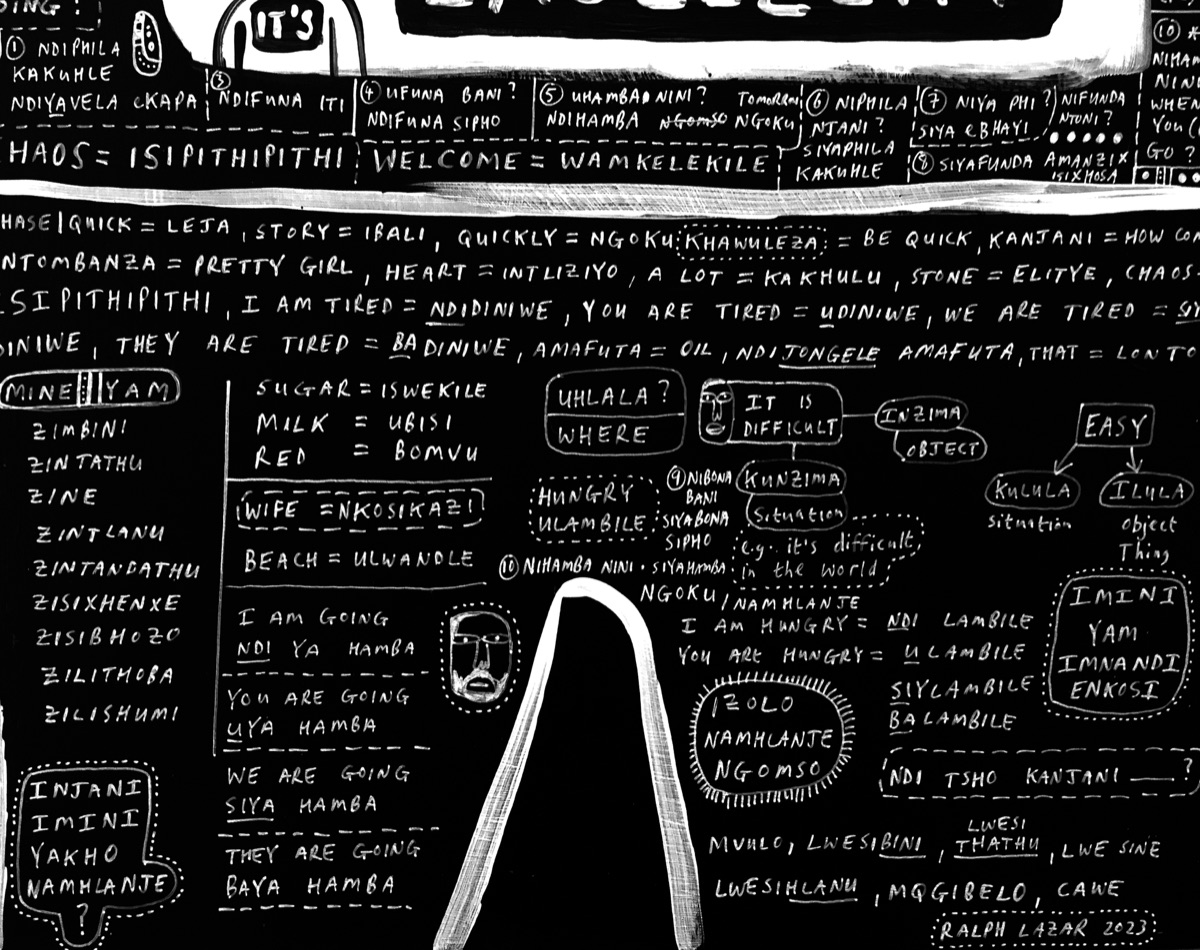 IT'S
① NDIPHILA
KAKUHLE
NDIYAVELA eKAPA
③
NDIFUNA ITI
④ UFUNA BANI?
NDIFUNA SIPHO
⑤ UHAMBA NINI? TOMORROW
NDIHAMBA NGOMSO NGOKU
⑥ NIPHILA
NJANI?
SIYAPHILA
KAKUHLE
⑦ NIYA PHI?
SIYA eBHAYI
⑧ SIYAFUNDA
NIFUNDA
NTONI?
AMANZI X
ISIXHOSA
⑩
NINI
WHEN
YOU
GO?
HAOS = ISIPITHIPITHI
WELCOME = WAMKELEKILE
HASE | QUICK = LEJA, STORY = IBALI, QUICKLY = NGOKU KHAWULEZA = BE QUICK, KANJANI = HOW COM
NTOMBANZA = PRETTY GIRL, HEART = INTLIZIYO, A LOT = KAKHULU, STONE = ELITYE, CHAOS =
ISIPITHIPITHI, I AM TIRED = NDIDINIWE, YOU ARE TIRED = UDINIWE, WE ARE TIRED = SIY
DINIWE, THEY ARE TIRED = BADINIWE, AMAFUTA = OIL, NDIJONGELE AMAFUTA, THAT = LONTO
MINE YAM
ZIMBINI
ZINTATHU
ZINE
ZINTLANU
ZINTANDATHU
ZISIXHENXE
ZISIBHOZO
ZILITHOBA
ZILISHUMI
INJANI
IMINI
YAKHO
NAMHLANJE
?
SUGAR = ISWEKILE
MILK = UBISI
RED = BOMVU
WIFE = NKOSIKAZI
BEACH = ULWANDLE
I AM GOING
NDI YA HAMBA
YOU ARE GOING
UYA HAMBA
WE ARE GOING
SIYA HAMBA
THEY ARE GOING
BAYA HAMBA
UHLALA?
WHERE
HUNGRY
ULAMBILE
IT IS
DIFFICULT
INZIMA
OBJECT
KUNZIMA
Situation
e.g. it's difficult
in the world
EASY
KULULA
situation
ILULA
object
Thing
⑨ NIBONA
BANI
SIYABONA
SIPHO
⑩ NIHAMBA NINI · SIYAHAMBA
NGOKU / NAMHLANJE
I AM HUNGRY = NDI LAMBILE
YOU ARE HUNGRY = ULAMBILE
SIYLAMBILE
BALAMBILE
IMINI
YAM
IMNANDI
ENKOSI
IZOLO
NAMHLANJE
NGOMSO
NDI TSHO KANJANI ___?
MVULO, LWESIBINI, LWESI THATHU, LWE SINE
LWESIHLANU, MQGIBELO, CAWE
RALPH LAZAR 2023